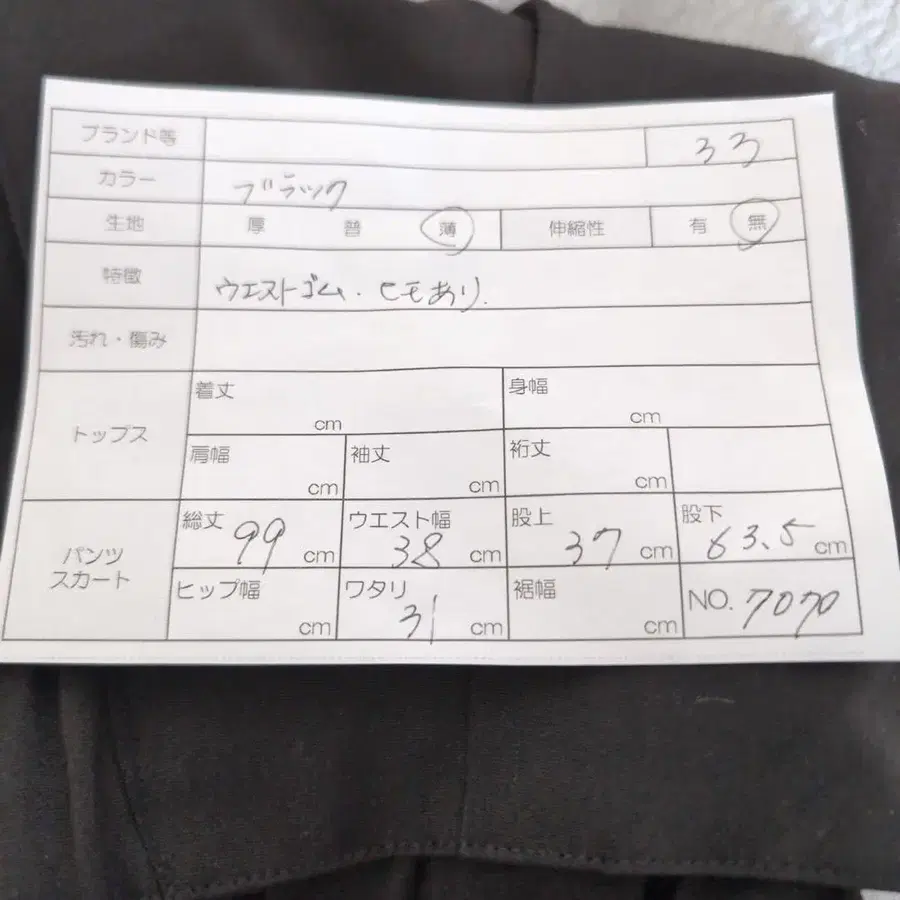 ブランド等 33
カラー ブラック
生地 厚 普 薄 伸縮性 有 無
特徴 ウエストゴム・ヒモあり.
汚れ・傷み
トップス
着丈 cm 身幅 cm
肩幅 cm 袖丈 cm 裄丈 cm
パンツ
スカート
総丈 99 cm ウエスト幅 38 cm 股上 37 cm 股下 63.5 cm
ヒップ幅 cm ワタリ 31 cm 裾幅 cm NO. 7070